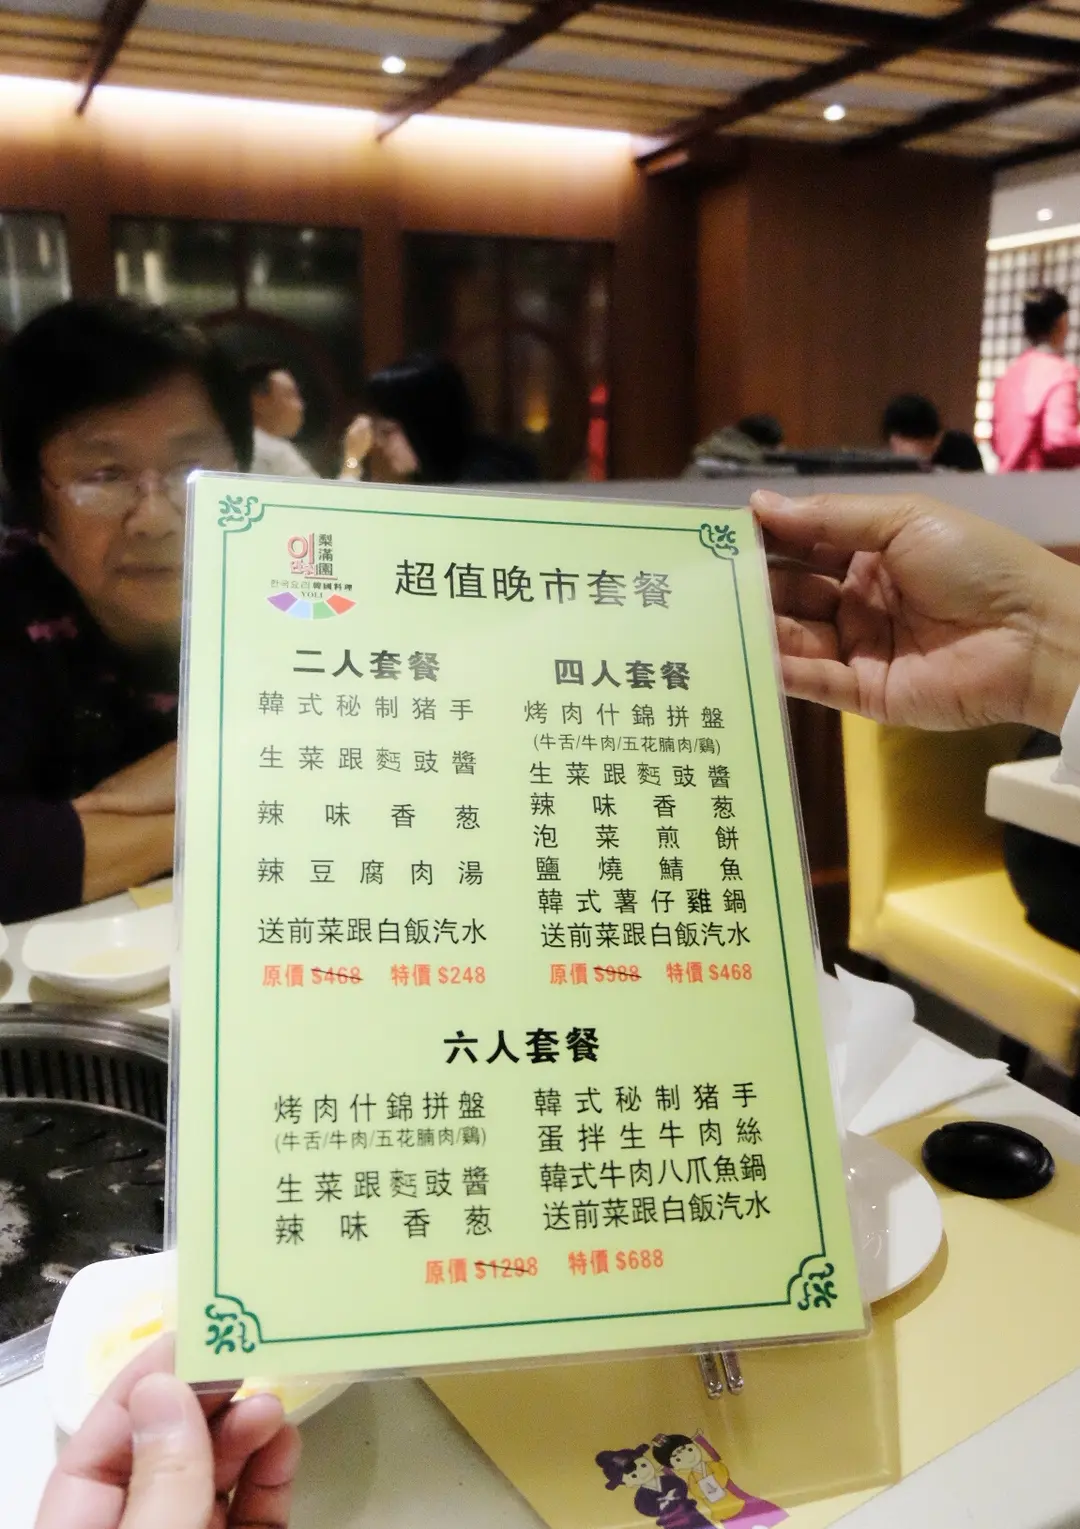 梨滿園
한국요리 韓國料理
YOLI
超值晚市套餐
二人套餐
韓式秘制猪手
生菜跟麫豉醬
辣味香葱
辣豆腐肉湯
送前菜跟白飯汽水
原價 $468 特價 $248
四人套餐
烤肉什錦拼盤
(牛舌/牛肉/五花腩肉/鷄)
生菜跟麫豉醬
辣味香葱
泡菜煎餅
鹽燒鯖魚
韓式薯仔雞鍋
送前菜跟白飯汽水
原價 $988 特價 $468
六人套餐
烤肉什錦拼盤
(牛舌/牛肉/五花腩肉/鷄)
生菜跟麫豉醬
辣味香葱
韓式秘制猪手
蛋拌生牛肉絲
韓式牛肉八爪魚鍋
送前菜跟白飯汽水
原價 $1298 特價 $688